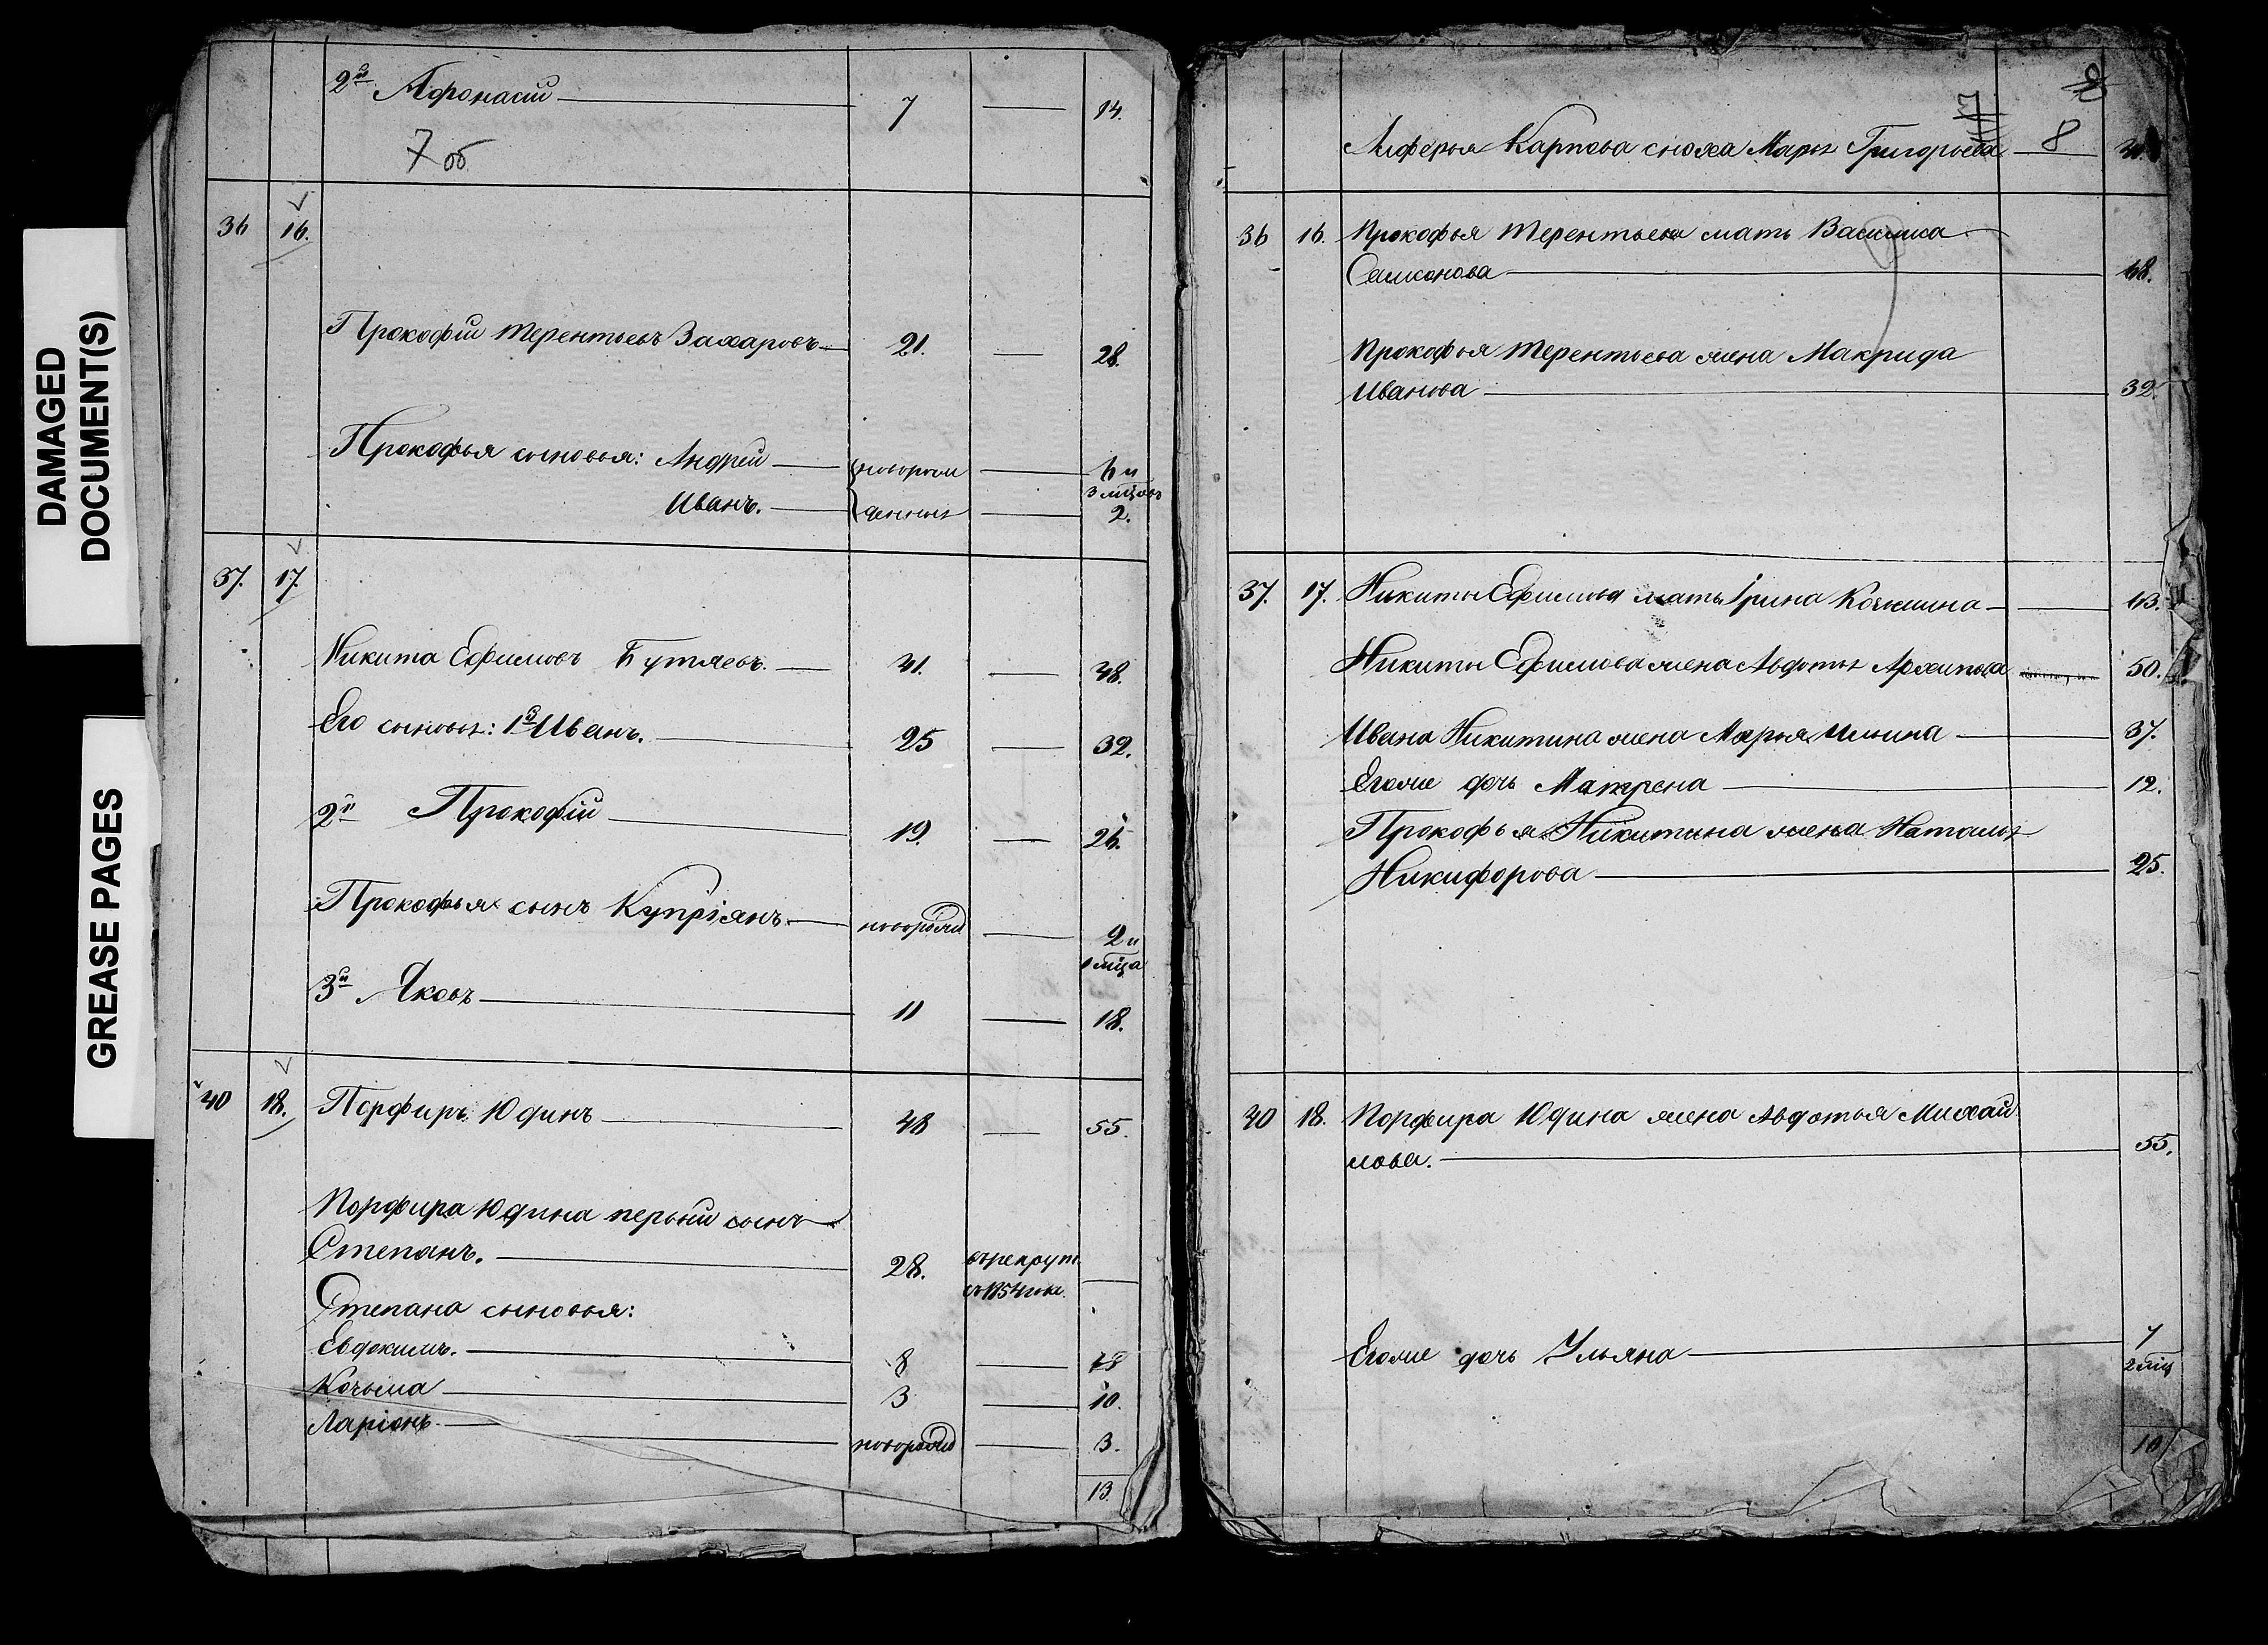 DAMAGED
DOCUMENT(S)
GREASE PAGES
2й Афонасий 7 14.
7 об
36 16.
Прокофій Терентьевъ Захаровъ 21. 28.
Прокофья сыновья: Андрей новорож 6 и
3 мцовъ
Иванъ. денные 2.
37. 17.
Никита Ефимовъ Бутяевъ. 41. 48.
Его сыновья: 1й Иванъ. 25 32.
2й Прокофій 19. 26.
Прокофья сынъ Купріянъ новорожд 2 и
1 мца
3й Яковъ 11 18.
40 18. Порфиръ Юдинъ 48 55.
Порфира Юдина первый сынъ
Степанъ. 28. въ рекрут.
въ 1854 годе.
Степана сыновья:
Евдокимъ. 8
Козьма 3 10.
Ларіонъ. новорожд 3.
13.
8
Алферья Карпова сноха Марья Григорьева
36 16. Прокофья Терентьева мать Василиса
Самсонова 68.
Прокофья Терентьева жена Макрида
Иванова 32.
37. 17. Никиты Ефимова мать Ірина Козмина
Никиты Ефимова жена Авдотья Архипова 50.
Ивана Никитина жена Марья Ильина 37.
Егоже дочь Матрена 12.
Прокофья Никитина жена Наталья
Никифорова 25.
40 18. Порфира Юдина жена Авдотья Михай
лова. 55.
Егоже дочь Ульяна 7
2 мц
10